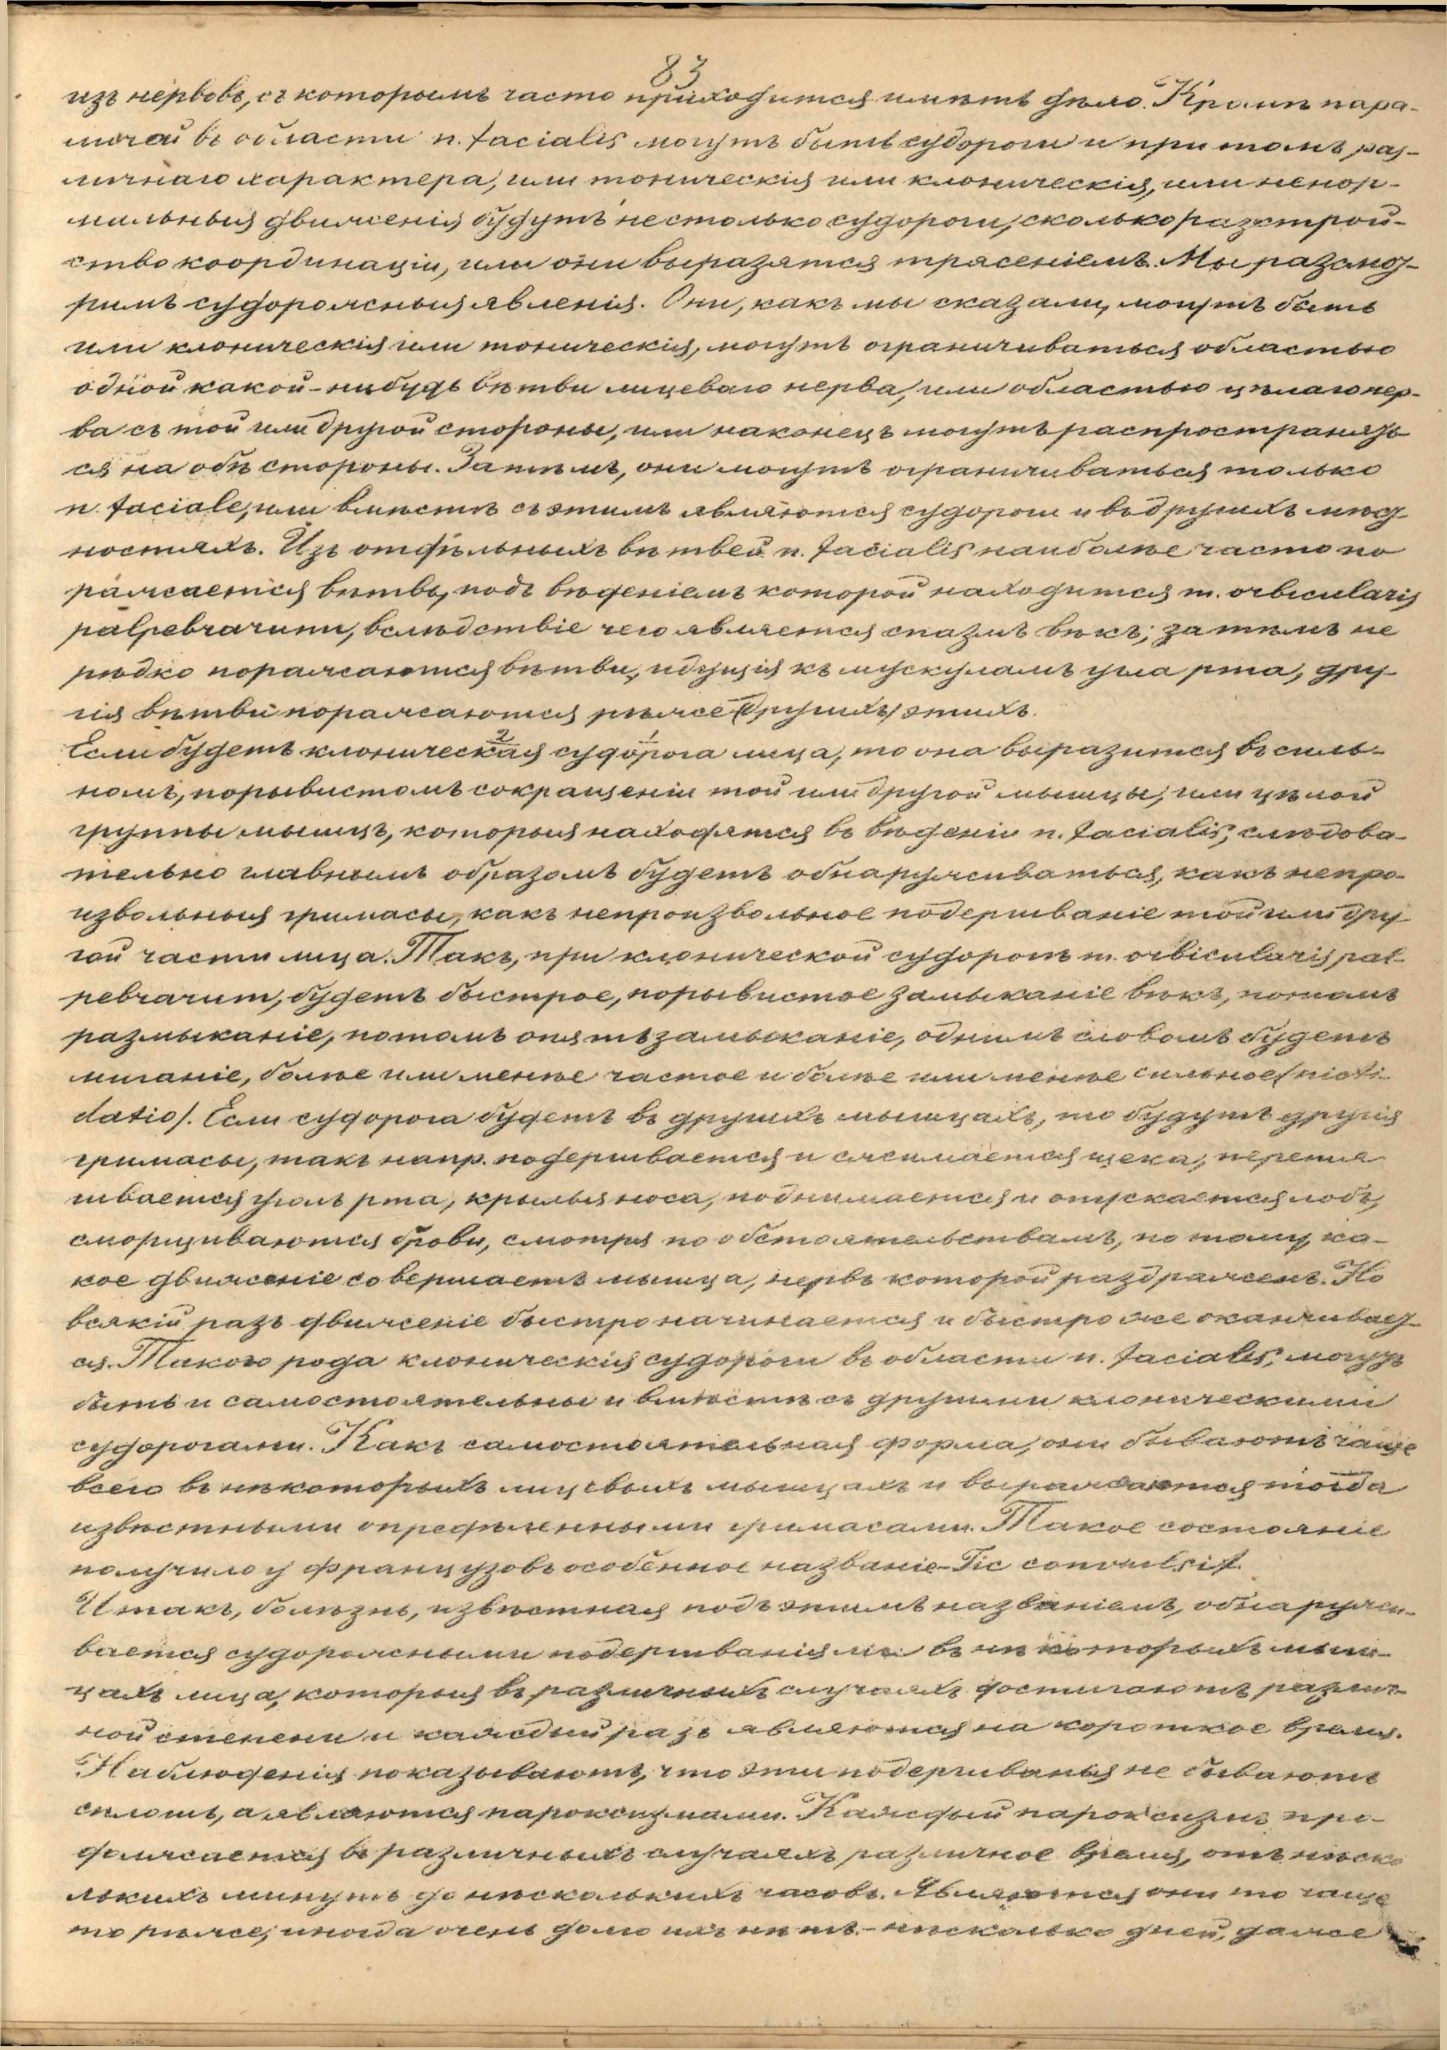 83
изъ нервовъ, съ которымъ часто приходится имѣть дѣло. Кромѣ пара-
личей въ области n. facialis могутъ быть судороги и при томъ раз-
личнаго характера, или тоническія или клоническія, или ненор-
мальныя движенія будутъ не столько судороги, сколько разстрой-
ство координаціи, или они выразятся трясеніемъ. Мы разсмот-
римъ судорожныя явленія. Они, какъ мы сказали, могутъ быть
или клоническія или тоническія, могутъ ограничиваться областью
одной какой-нибудь вѣтви лицеваго нерва, или областью цѣлаго нер-
ва съ той или другой стороны, или наконецъ могутъ распространять
ся на обѣ стороны. Затѣмъ, они могутъ ограничиваться только
n. faciale, или вмѣстѣ съ этимъ являются судороги и въ другихъ мѣст-
ностяхъ. Изъ отдѣльныхъ вѣтвей n. facialis наиболѣе часто по
ражается вѣтвь, подъ вѣденіемъ которой находится m. orbicularis
palpebrarum, вслѣдствіе чего является спазмъ вѣкъ; затѣмъ не
рѣдко поражаются вѣтви, идущія къ мускуламъ угла рта, дру-
гія вѣтви поражаются рѣже (другихъ) этихъ.
Если будетъ клоническая 2 судорога 1 лица, то она выразится въ силь-
номъ, порывистомъ сокращеніи той или другой мышцы, или цѣлой
группы мышцъ, которыя находятся въ вѣденіи n. facialis, слѣдова-
тельно главнымъ образомъ будетъ обнаруживаться, какъ непро-
извольныя гримасы, какъ непроизвольное подергиваніе той или дру-
гой части лица. Такъ, при клонической судорогѣ m. orbicularis pal-
pebrarum, будетъ быстрое, порывистое замыканіе вѣкъ, потомъ
размыканіе, потомъ опять замыканіе, однимъ словомъ будетъ
миганіе, болѣе или менѣе частое и болѣе или менѣе сильное (nicti-
datio). Если судорога будетъ въ другихъ мышцахъ, то будутъ другія
гримасы, такъ напр. подергивается и сжимается щека, перетя
гивается уголъ рта, крылья носа, поднимается и опускается лобъ,
сморщиваются брови, смотря по обстоятельствамъ, по тому, ка-
кое движеніе совершаетъ мышца, нервъ которой раздраженъ. Но
всякій разъ движеніе быстро начинается и быстро же оканчивает-
ся. Такого рода клоническія судороги въ области n. facialis, могутъ
быть и самостоятельны и вмѣстѣ съ другими клоническими
судорогами. Какъ самостоятельная форма, они бываютъ чаще
всего въ нѣкоторыхъ лицевыхъ мышцахъ и выражаются тогда
извѣстными опредѣленными гримасами. Такое состояніе
получило у французовъ особенное названіе - Tic convulsif.
Итакъ, болѣзнь, извѣстная подъ этимъ названіемъ, обнаружи-
вается судорожными подергиваніями въ нѣкоторыхъ мыш-
цахъ лица, которыя въ различныхъ случаяхъ достигаютъ различ-
ной степени и каждый разъ являются на короткое время.
Наблюденія показываютъ, что эти подергиванья не бываютъ
сплошь, а являются пароксизмами. Каждый пароксизмъ про-
должается въ различныхъ случаяхъ различное время, отъ нѣско
лькихъ минутъ до нѣсколькихъ часовъ. Являются они то чаще
то рѣже; иногда очень долго ихъ нѣтъ - нѣсколько дней, даже